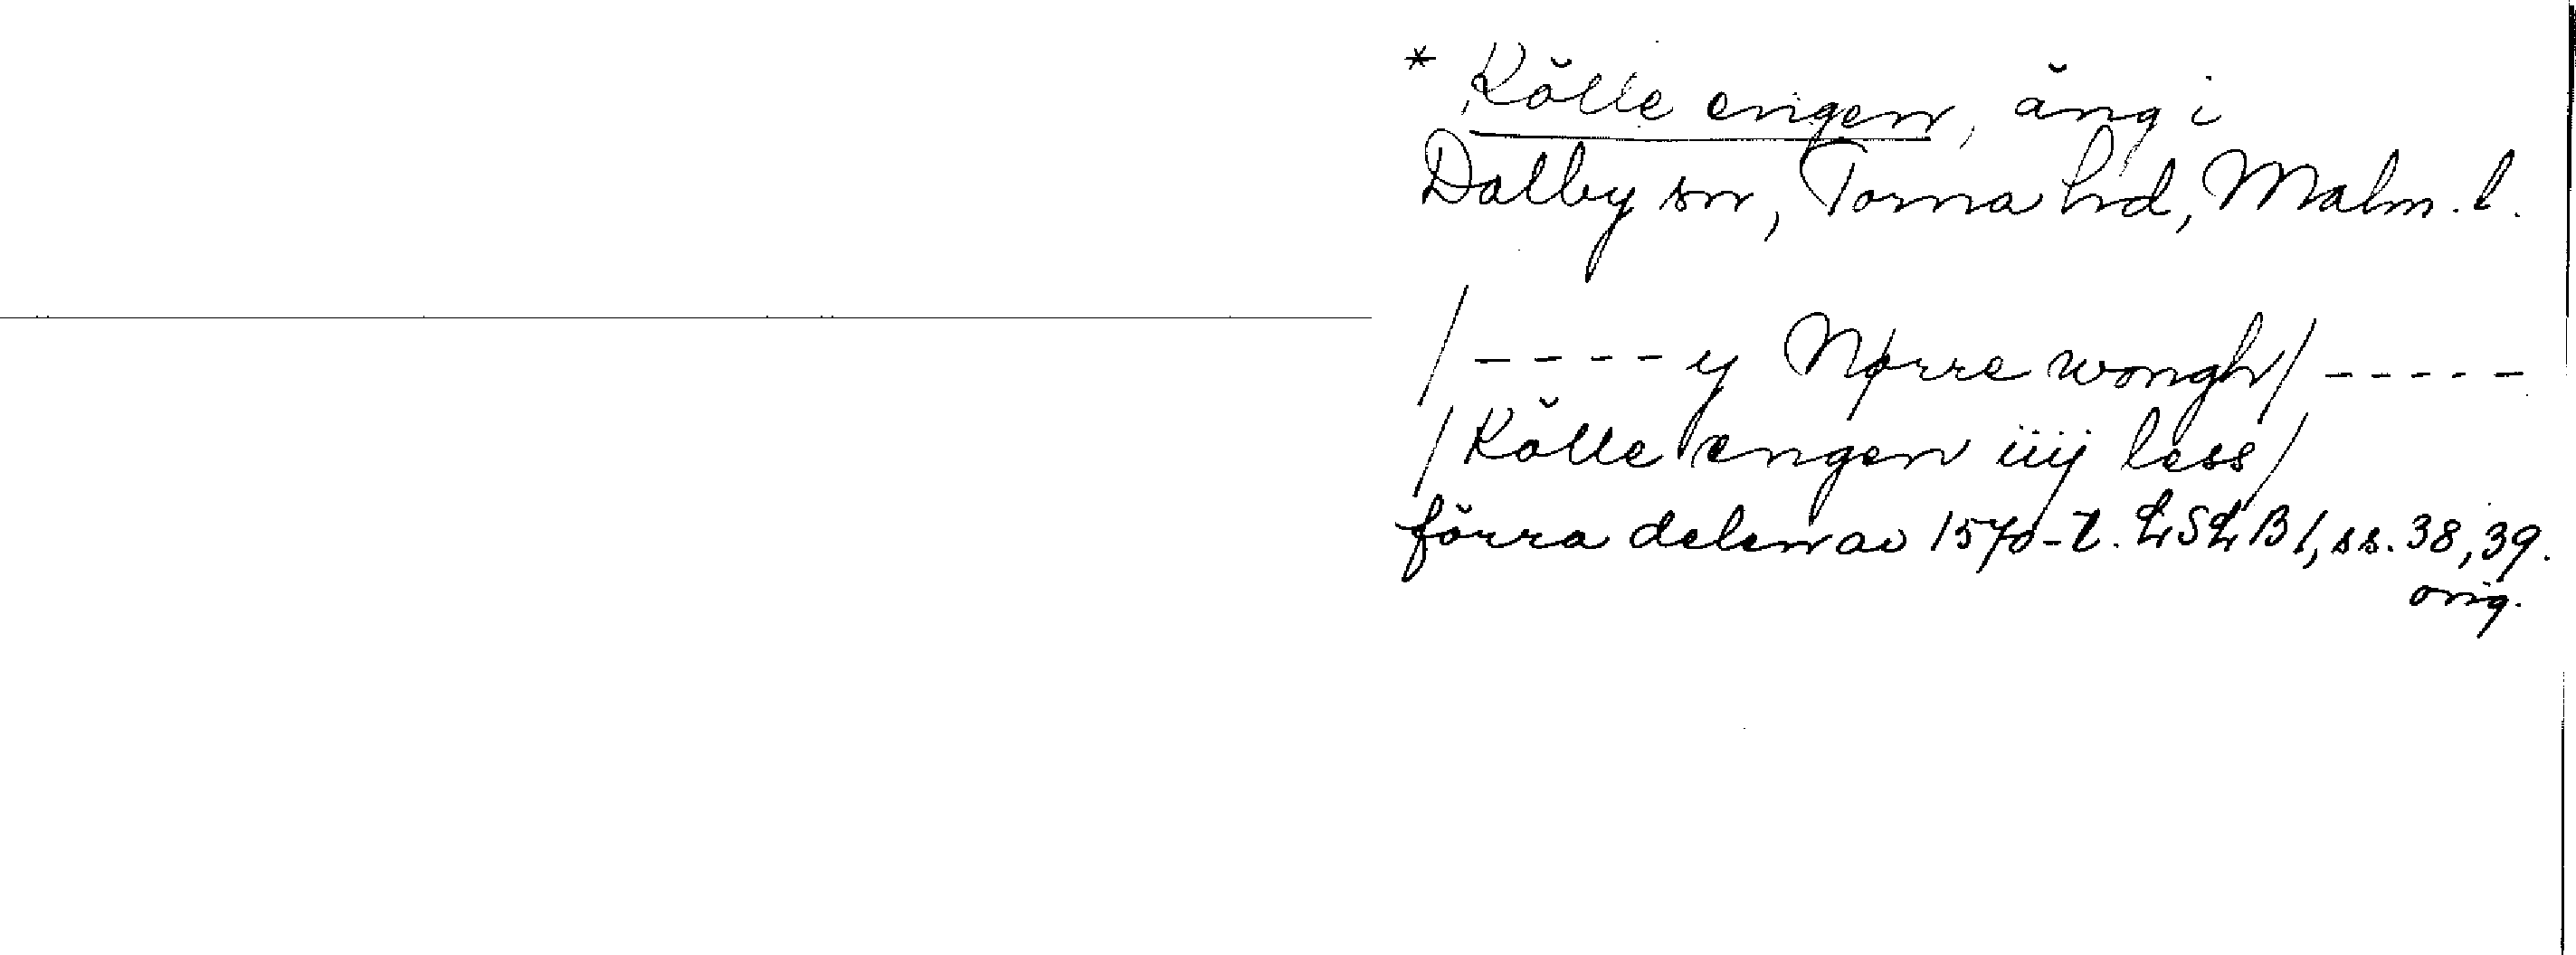 * Kölle engen, äng i
Dalby sn, Torna hd, Malm. l.
/ - - - - y Nørre wongh / - - - - -
/ Kölle engen iiij less /
förra delen av 1570-t. LSLB 1, ss. 38, 39.
orig.